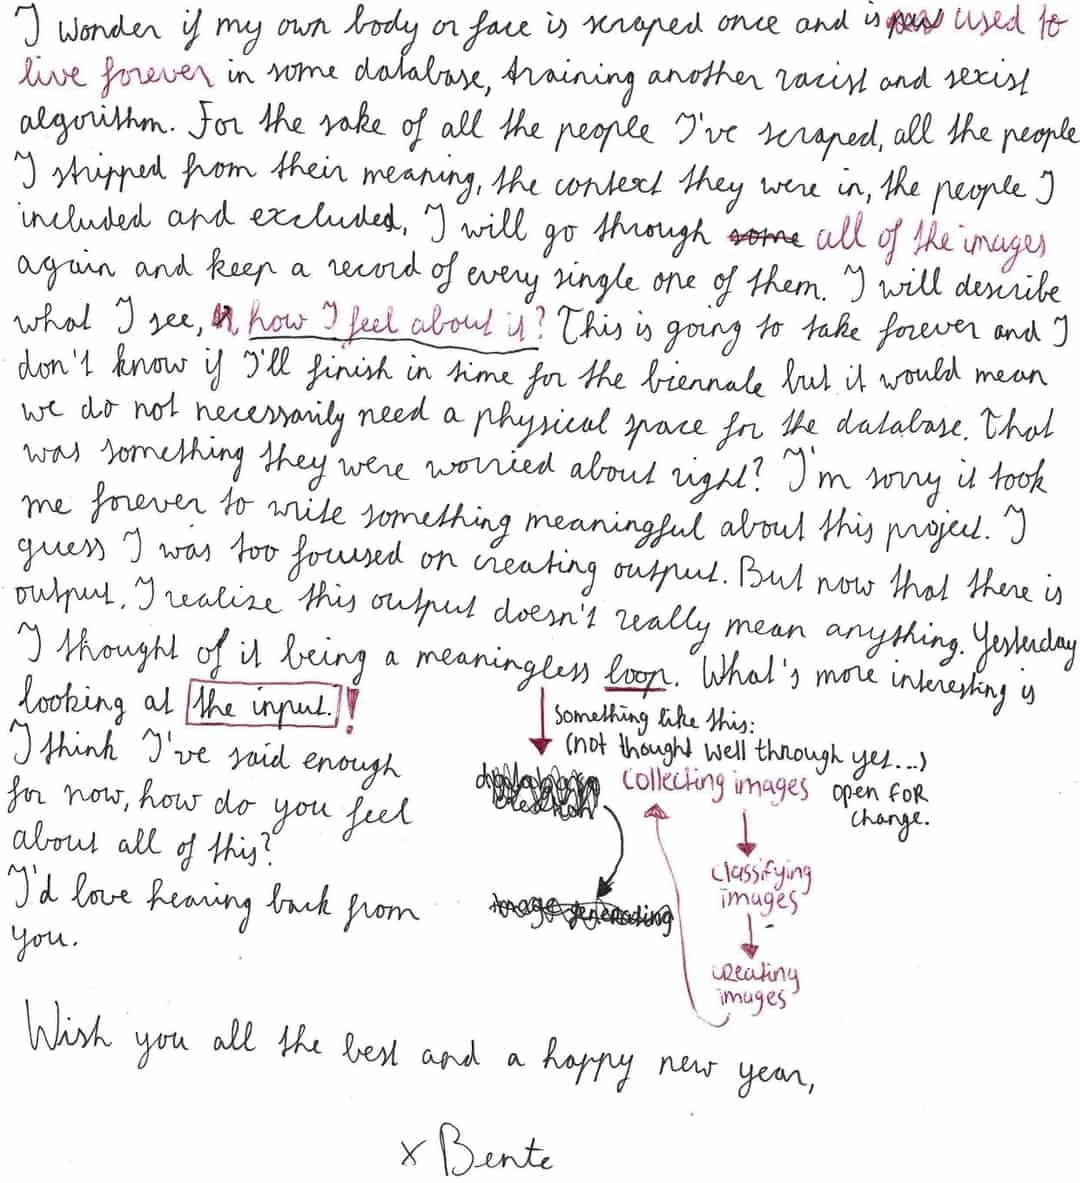 I wonder if my own body or face is scraped once and is used to
live forever in some database, training another racist and sexist
algorithm. For the sake of all the people I've scraped, all the people
I stripped from their meaning, the context they were in, the people I
included and excluded, I will go through some all of the images
again and keep a record of every single one of them. I will describe
what I see, how I feel about it? This is going to take forever and I
don't know if I'll finish in time for the biennale but it would mean
we do not necessarily need a physical space for the database. That
was something they were worried about right? I'm sorry it took
me forever to write something meaningful about this project. I
guess I was too focused on creating output. But now that there is
output, I realize this output doesn't really mean anything. Yesterday
I thought of it being a meaningless loop. What's more interesting is
looking at the input.!
I think I've said enough
for now, how do you feel
about all of this?
I'd love hearing back from
you.
something like this:
(not thought well through yet...)
collecting images
open for
change.
classifying
images
creating
images
image generating
Wish you all the best and a happy new year,
x Bente